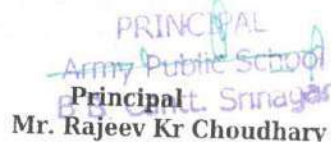 PRINCIPAL
Army Public School
B B Cantt. Srinagar
Principal
Mr. Rajeev Kr Choudhary